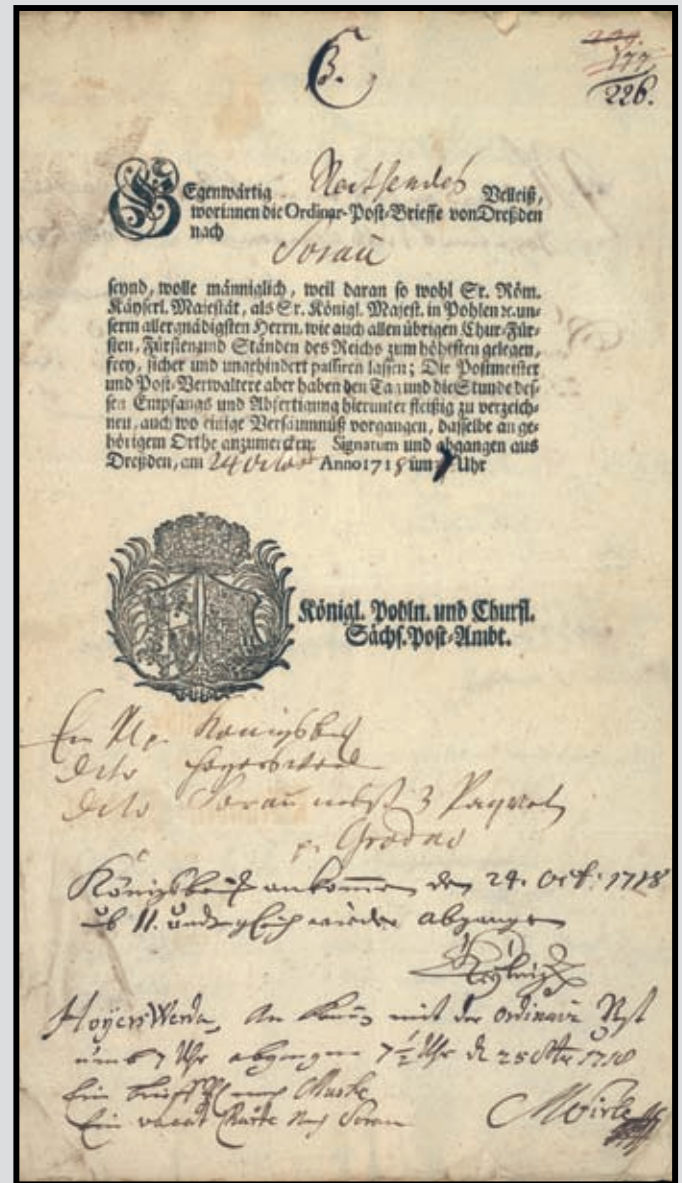 B.
229.
177
226.
GEgenwärtig Velleiß,
worinnen die Ordinar-Post-Brieffe von Dreßden
nach
Sorau
seynd, wolle männiglich, weil daran so wohl Sr. Röm.
Käyserl. Majestät, als Sr. Königl. Majest. in Pohlen ꝛc. un-
serm allergnädigsten Herrn, wie auch allen übrigen Chur-Für-
sten, Fürsten und Ständen des Reichs zum höhesten gelegen,
frey, sicher und ungehindert passiren lassen; Die Postmeister
und Post-Verwaltere aber haben den Tag und die Stunde des-
sen Empfangs und Abfertigung hierunter fleißig zu verzeich-
nen, auch wo einige Versäumnüß vorgangen, dasselbe an ge-
hörigem Orthe anzumercken. Signatum und abgangen aus
Dreßden, am 24 Anno 1718 üm 7 Uhr
Königl. Pohln. und Churfl.
Sächs. Post-Ambt.
Ein Königsbr
dito Hoyerswerd
dito Sorau nebst 3 Paquet
p. Grodno
Königsbrück ankommen den 24. Oct: 1718
üb 11. und gleich wieder abgangen
HoyersWerda, mit der Ordinair Post
umb 7 Uhr abgangen 7 1/2 Uhr d 25 1718
Ein brieff nach Muska
Ein Karte nach Sorau